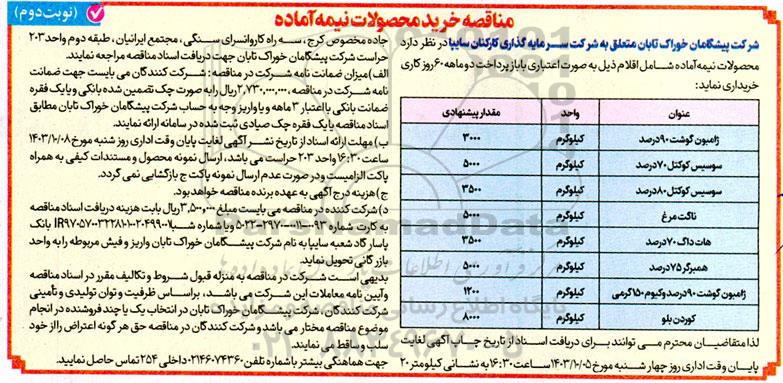 مناقصه خرید محصولات نیمه آماده
(نوبت دوم)
شرکت پیشگامان خوراک تابان متعلق به شرکت سرمایه گذاری کارکنان سایپا در نظر دارد
محصولات نیمه آماده شامل اقلام ذیل به صورت اعتباری با باز پرداخت دو ماهه ۶۰ روز کاری
خریداری نماید:
عنوان واحد مقدار پیشنهادی
ژامبون گوشت ۹۰ درصد کیلوگرم ۳۰۰۰
سوسیس کوکتل ۷۰ درصد کیلوگرم ۵۰۰۰
سوسیس کوکتل ۸۰ درصد کیلوگرم ۳۵۰۰
ناگت مرغ کیلوگرم ۵۰۰۰
هات داگ ۷۰ درصد کیلوگرم ۳۵۰۰
همبرگر ۷۵ درصد کیلوگرم ۵۰۰۰
ژامبون گوشت ۹۰ درصد وکیوم ۱۵۰ گرمی کیلوگرم ۱۲۰۰
کوردن بلو کیلوگرم ۸۰۰۰
لذا متقاضیان محترم می توانند برای دریافت اسناد از تاریخ چاپ آگهی لغایت
پایان وقت اداری روز چهار شنبه مورخ ۱۴۰۳/۱۰/۰۵ ساعت ۱۶:۳۰ به نشانی کیلومتر ۲۰
جاده مخصوص کرج، سه راه کاروانسرای سنگی، مجتمع ایرانیان، طبقه دوم واحد ۲۰۳
حراست شرکت پیشگامان خوراک تابان جهت دریافت اسناد مناقصه مراجعه نمایند.
الف) میزان ضمانت نامه شرکت در مناقصه: شرکت کنندگان می بایست جهت ضمانت
نامه شرکت در مناقصه، ۲,۷۳۰,۰۰۰,۰۰۰ ریال را به صورت چک تضمین شده بانکی و یا یک فقره
ضمانت بانکی با اعتبار ۳ ماهه و یا واریز وجه به حساب شرکت پیشگامان خوراک تابان مطابق
اسناد مناقصه یا یک فقره چک صیادی ثبت شده در سامانه ارائه نمایند.
ب) مهلت ارائه اسناد از تاریخ نشر آگهی لغایت پایان وقت اداری روز شنبه مورخ ۱۴۰۳/۱۰/۰۸
ساعت ۱۶:۳۰ واحد ۲۰۳ حراست می باشد، ارسال نمونه محصول و مستندات کیفی به همراه
پاکت الزامیست و در صورت عدم ارسال نمونه پاکت ج بازگشایی نمی گردد.
ج) هزینه درج آگهی به عهده برنده مناقصه خواهد بود.
د) شرکت کننده در مناقصه می بایست مبلغ ۳,۵۰۰,۰۰۰ ریال بابت هزینه دریافت اسناد مناقصه
به کارت شماره و یا شماره شبا بانک
پاسارگاد شعبه سایپا به نام شرکت پیشگامان خوراک تابان واریز و فیش مربوطه را به واحد
بازرگانی تحویل نماید.
بدیهی است شرکت در مناقصه به منزله قبول شروط و تکالیف مقرر در اسناد مناقصه
و آیین نامه معاملات این شرکت می باشد، براساس ظرفیت و توان تولیدی و تأمینی
شرکت کنندگان، شرکت پیشگامان خوراک تابان در انتخاب یک یا چند فروشنده در انجام
موضوع مناقصه مختار می باشد و شرکت کنندگان در مناقصه حق هر گونه اعتراض را از خود
سلب و ساقط می نمایند.
جهت هماهنگی بیشتر با شماره تلفن ۰۲۱۴۶۰۷۴۳۶۰ داخلی ۲۵۴ تماس حاصل نمایید.